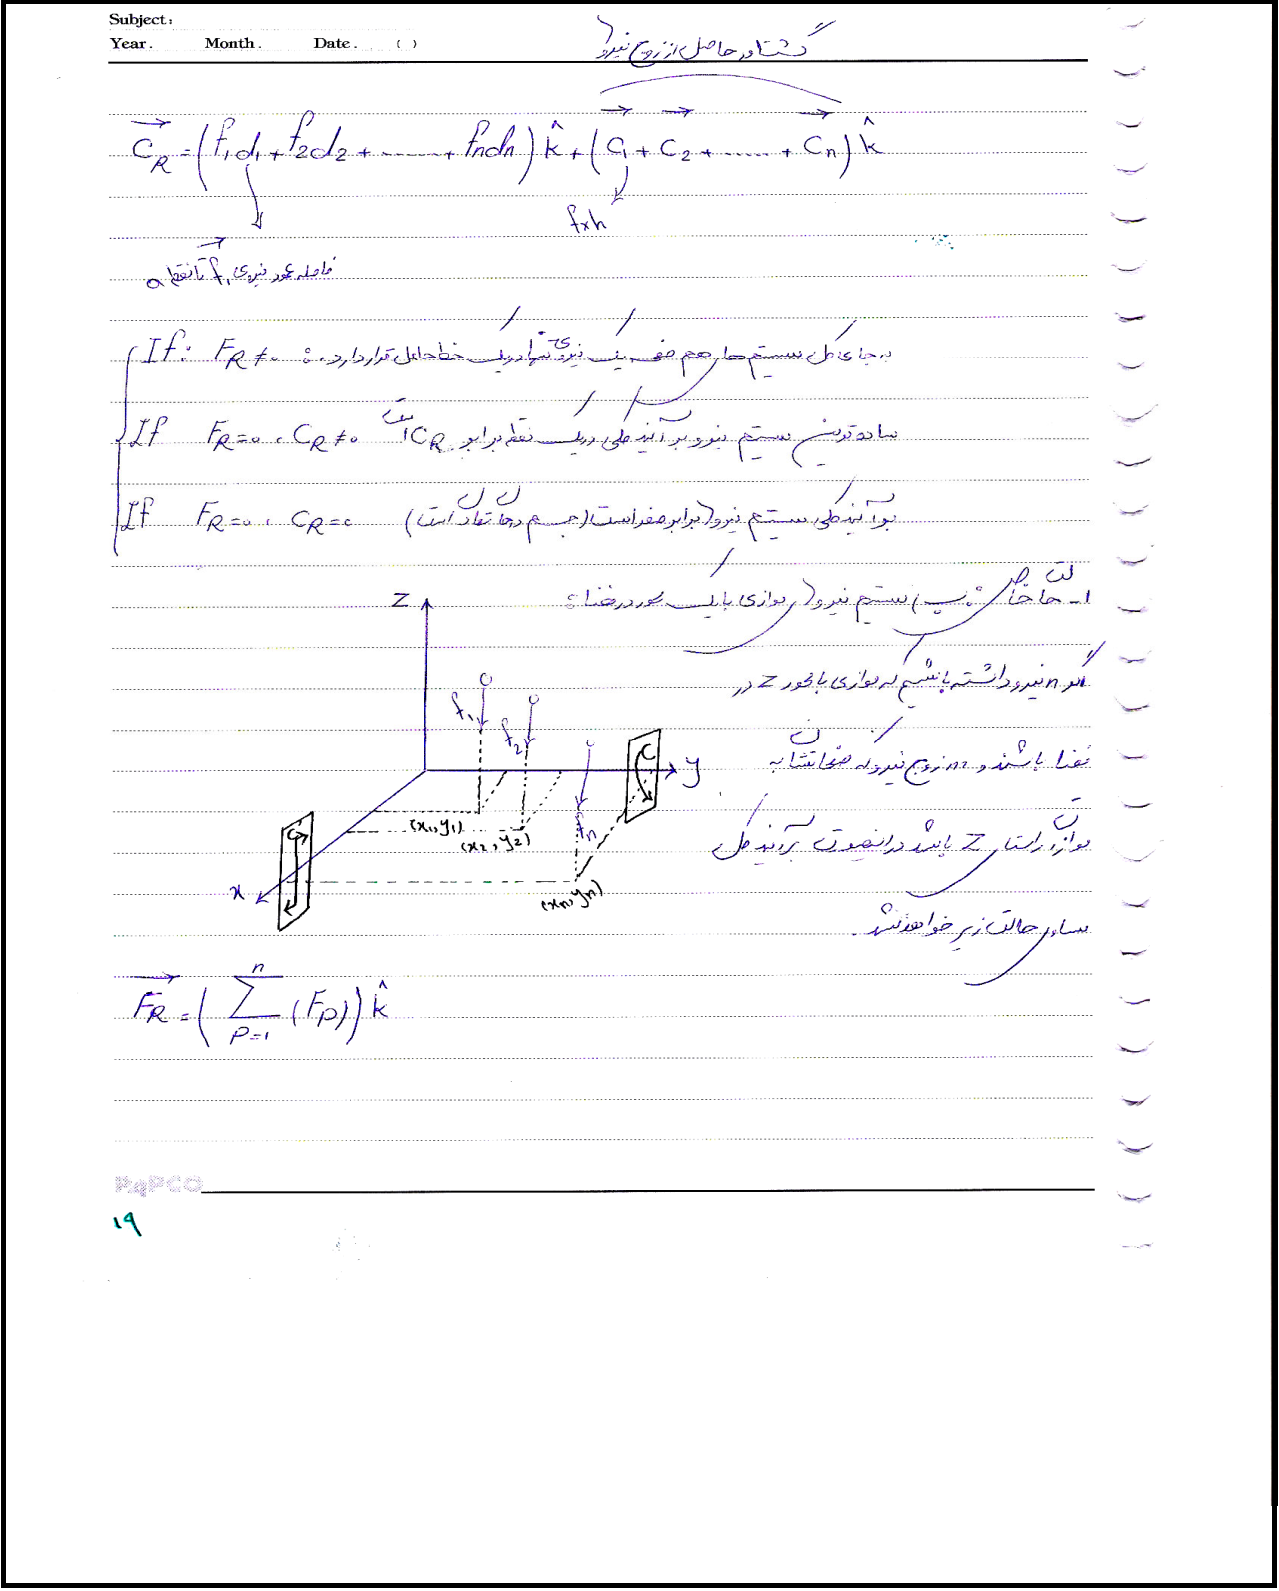 Subject:
Year. Month. Date. ( )
گشتاور حاصل از زوج نیروها
C_R = (f₁d₁ + f₂d₂ + ...... + fndn) k̂ + (C₁ + C₂ + ...... + Cn) k̂
f×h
فاصله عمود نیروی f₁ تا نقطه o
If: F_R ≠ 0 : به جای کل سیستم ها هم صفحه یک نیروی تنها در یک خط حامل قرار دارد.
If F_R = 0 , C_R ≠ 0 ساده‌ترین سیستم نیرو برآیند کلی در یک نقطه برابر C_R است
If F_R = 0 , C_R = 0 برآیند کلی سیستم نیروها برابر صفر است (جسم در حال تعادل است)
۱- حالت خاص : سیستم نیروهای موازی با یک محور در فضا :
اگر n نیرو داشته باشیم که موازی با محور Z در
فضا باشند و m زوج نیرو که صفحاتشان به
موازات راستای Z باشد در اینصورت برآیند کل
بصورت حالت زیر خواهند شد.
Z
f₁
f₂
fn
C
y
(x₁, y₁)
(x₂, y₂)
C
x
(xn, yn)
F_R = ( Σ_{P=1}^{n} (F_P) ) k̂
PAPCO
۱۹